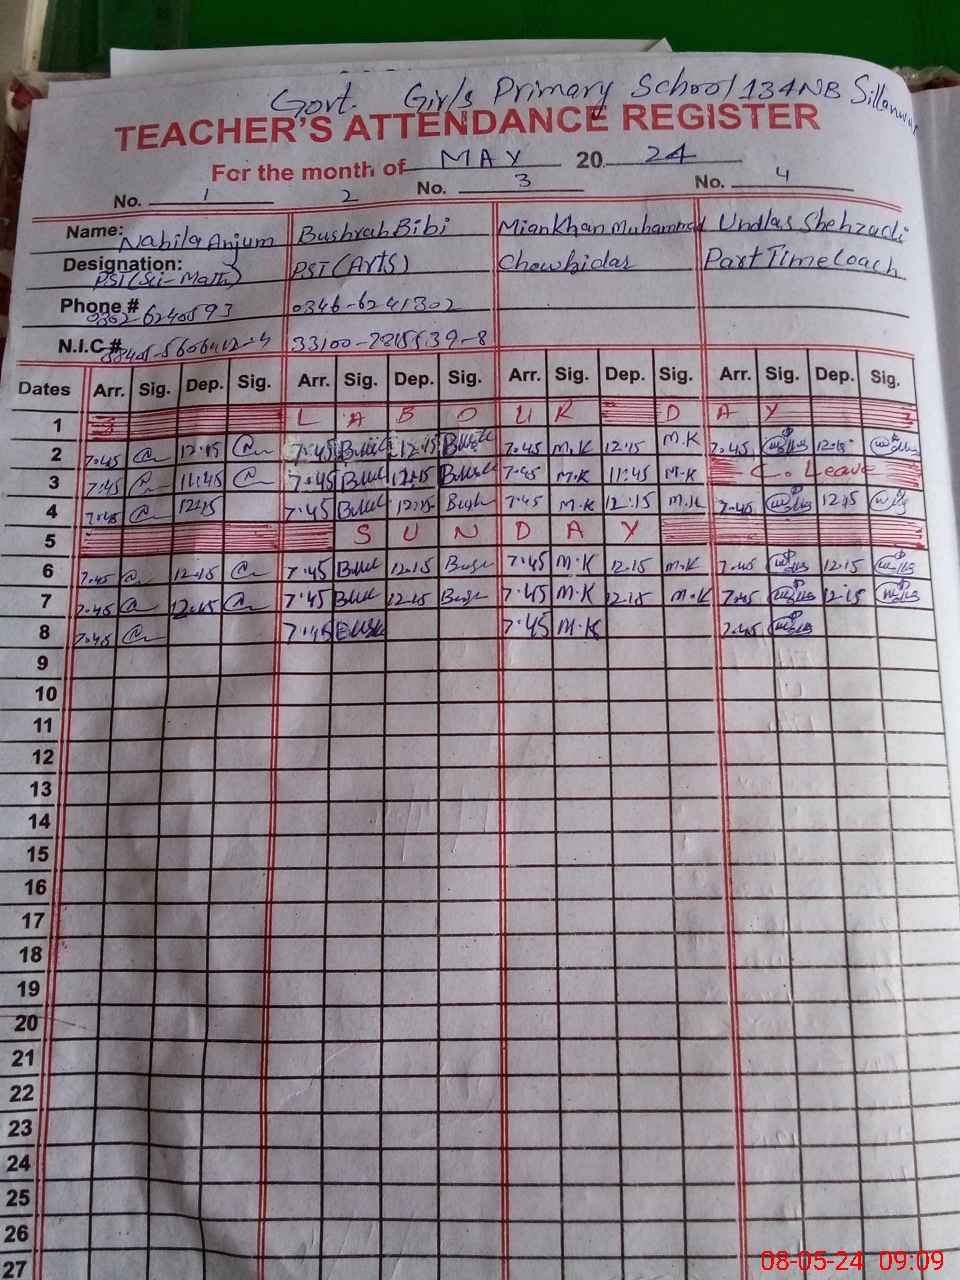 Govt. Girls Primary School 134NB Sillanwali
TEACHER'S ATTENDANCE REGISTER
For the month of MAY 20 24
No. 1 2 No. 3 No. 4
Name: Nabila Anjum Bushrah Bibi Mian Khan Muhammad Undlas Shehzadi
Designation: PST (Sci-Math) PST (Arts) Chowkidar Part Time Coach
Phone # 0302-6240593 0346-6241302
N.I.C # 33100-2215539-8
Dates Arr. Sig. Dep. Sig. Arr. Sig. Dep. Sig. Arr. Sig. Dep. Sig. Arr. Sig. Dep. Sig.
1 L A B O U R D A Y
2 7.45 12.15 7.45 12.15 7.45 M.K 12.15 M.K 7.45 12.15
3 7.45 11.45 7.45 12.15 7.45 M.K 11.45 M.K C. Leave
4 7.45 12.15 7.45 12.15 7.45 M.K 12.15 M.K 7.45 12.15
5 S U N D A Y
6 7.45 12.15 7.45 12.15 7.45 M.K 12.15 M.K 7.45 12.15
7 7.45 12.15 7.45 12.15 7.45 M.K 12.15 M.K 7.45 12.15
8 7.45 7.45 7.45 M.K 7.45
9
10
11
12
13
14
15
16
17
18
19
20
21
22
23
24
25
26
27
08-05-24 09:09